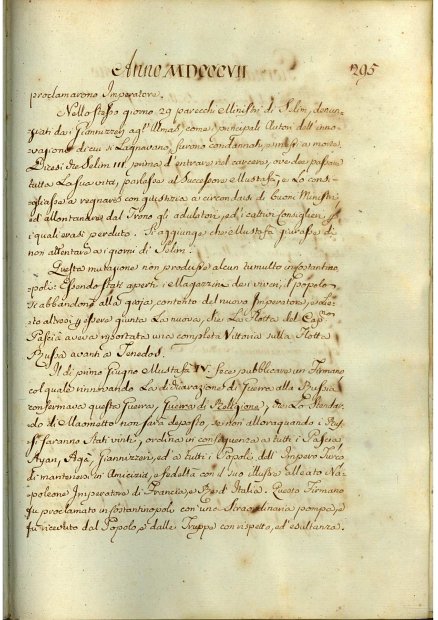 Anno MDCCCVII 295
proclamarono Imperatore.
Nello stesso giorno 29 parecchi Ministri di Selim, denun-
ziati dai Giannizzeri agl'Ulmas, come principali Autori dell'inno-
vazione di cui si Lagnavano, furono condannati, e messi a morte.
Dicesi che Selim III prima d'entrare nel carcere, ove dee passare
tutta La sua vita, parlasse al Successore Mustafà, e Lo consi-
gliasse a regnare con giustizia a circondarsi di buoni Ministri,
ed allontanare dal Trono gli adulatori, ed i cattivi consiglieri, pei
quali erasi perduto. Si aggiunge che Mustafà giurasse di
non attentare ai giorni di Selim.
Questa mutazione non produsse alcun tumulto in Costantino-
poli. Essendo stati aperti i Magazzini dei viveri, il popolo
si abbandonò alla gioja, contento del nuovo Imperatore, e Lie-
to altresì per essere giunta La nuova, che La Flotta del Cap.
Pascià aveva riportata una completa Vittoria sulla Flotta
Russa avanti a Tenedos.
Il dì primo Giugno Mustafà IV fece pubblicare un Firmano
col quale rinnovando La dichiarazione di Guerra alla Russia
confermava questa Guerra, Guerra di Religione, che Lo Stendar-
do di Maometto non sarà deposto, se non allora quando i Rus-
si saranno Stati vinti, ordina in conseguenza a tutti i Pascià
Ayan, Agà, Giannizzeri, ed a tutti i Popoli dell'Impero Turco
di mantenersi in Amicizia, e fedeltà con il Suo illustre alleato Na-
poleone Imperatore di Francia, e Re d'Italia. Questo Firmano
fu proclamato in Costantinopoli con una Straordinaria pompa, e
fu ricevuto dal Popolo, e dalle Truppe con rispetto, ed esultanza.